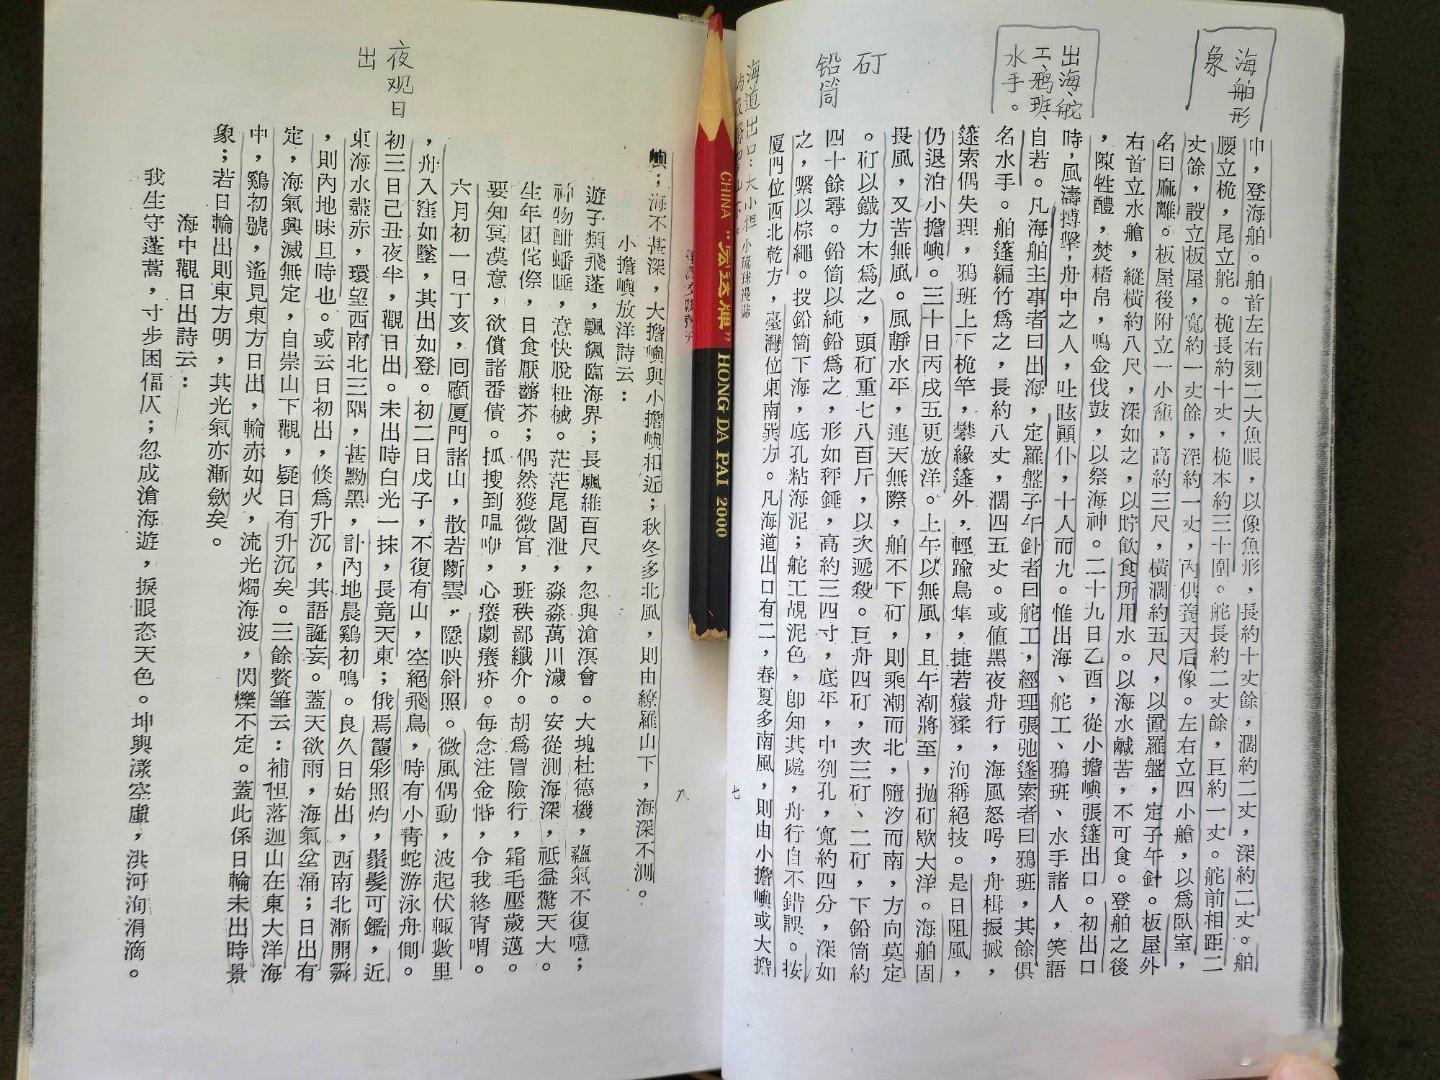 海舶形
象
出海、舵
工、鴉班、
水手。
矴
铅筒
海道出口：大小担
巾，登海舶。舶首左右刻二大魚眼，以像魚形，長約十丈餘，濶約二丈，深約二丈。舶
腰立桅，尾立舵。桅長約十丈，桅本約三十圍。舵長約二丈餘，巨約一丈。舵前相距二
丈餘，設立板屋，寬約一丈餘，深約一丈，內供養天后像。左右立四小艙，以爲臥室，
名曰麻離。板屋後附立一小龕，高約三尺，橫濶約五尺，以置羅盤，定子午針。板屋外
右首立水艙，縱橫約八尺，深如之，以貯飲食所用水。以海水鹹苦，不可食。登舶之後
，陳牲醴，焚楮帛，鳴金伐鼓，以祭海神。二十九日乙酉，從小擔嶼張篷出口。初出口
時，風濤搏擊，舟中之人，吐眩顚仆，十人而九。惟出海、舵工、鴉班、水手諸人，笑語
自若。凡海舶主事者曰出海，定羅盤子午針者曰舵工，經理張弛篷索者曰鴉班，其餘俱
名水手。舶篷編竹爲之，長約八丈，濶四五丈。或値黑夜舟行，海風怒號，舟楫振撼，
篷索偶失理，鴉班上下桅竿，攀緣篷外，輕踰鳥隼，捷若猿猱，洵稱絕技。是日阻風，
仍退泊小擔嶼。三十日丙戌五更放洋。上午以無風，且午潮將至，拋矴歇大洋。海舶固
畏風，又苦無風。風靜水平，連天無際，舶不下矴，則乘潮而北，隨汐而南，方向莫定
。矴以鐵力木爲之，頭矴重七八百斤，以次遞殺。巨舟四矴，次三矴、二矴，下鉛筒約
四十餘尋。鉛筒以純鉛爲之，形如秤錘，高約三四寸，底平，中刳孔，寬約四分，深如
之，繫以棕繩。投鉛筒下海，底孔粘海泥；舵工覘泥色，卽知其處，舟行自不錯誤。按
厦門位西北乾方，臺灣位東南巽方。凡海道出口有二，春夏多南風，則由小擔嶼或大擔
七
夜观日
出
嶼；海不甚深，大擔嶼與小擔嶼相近；秋冬多北風，則由繚羅山下，海深不測。
小擔嶼放洋詩云：
遊子類飛蓬，飄飄臨海界；長颿維百尺，忽與滄溟會。大塊杜德機，蘊氣不復噫；
神物酣蟠睡，意快脫枉械。茫茫尾閭泄，淼淼萬川濊。安從測海深，祗益驚天大。
生年困侘傺，日食厭虀芥；偶然獲微官，班秩鄙纖介。胡爲冒險行，霜毛壓歲邁。
要知冥漠意，欲償諸番債。抓搜到嗢咿，心瘘劇癢疥。每念注金惛，令我終宵喟。
六月初一日丁亥，囘顧厦門諸山，散若斷雲，隱映斜照。微風偶動，波起伏輒數里
，舟入窪如墜，其出如登。初二日戊子，不復有山，空絕飛鳥，時有小靑蛇游泳舟側。
初三日己丑夜半，觀日出。未出時白光一抹，長竟天東；俄焉霞彩照灼，鬚髮可鑑，近
東海水盡赤，環望西南北三隅，甚黝黑，計內地晨鷄初鳴。良久日始出，西南北漸開霽
，則內地昧旦時也。或云日初出，倐爲升沉，其語誕妄。蓋天欲雨，海氣坌涌；日出有
定，海氣興滅無定，自崇山下觀，疑日有升沉矣。三餘贅筆云：補怛落迦山在東大洋海
中，鷄初號，遙見東方日出，輪赤如火，流光燭海波，閃爍不定。蓋此係日輪未出時景
象；若日輪出則東方明，其光氣亦漸歛矣。
海中觀日出詩云：
我生守蓬蒿，寸步困偪仄；忽成滄海遊，捩眼恣天色。坤輿漾空虛，洪河洵涓滴。
八
CHINA "宏达牌" HONG DA PAI 2000